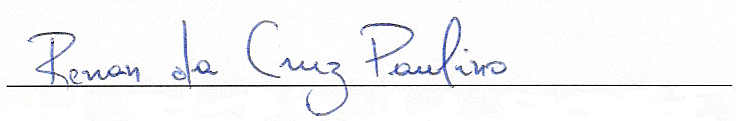 Renan da Cruz Paulino